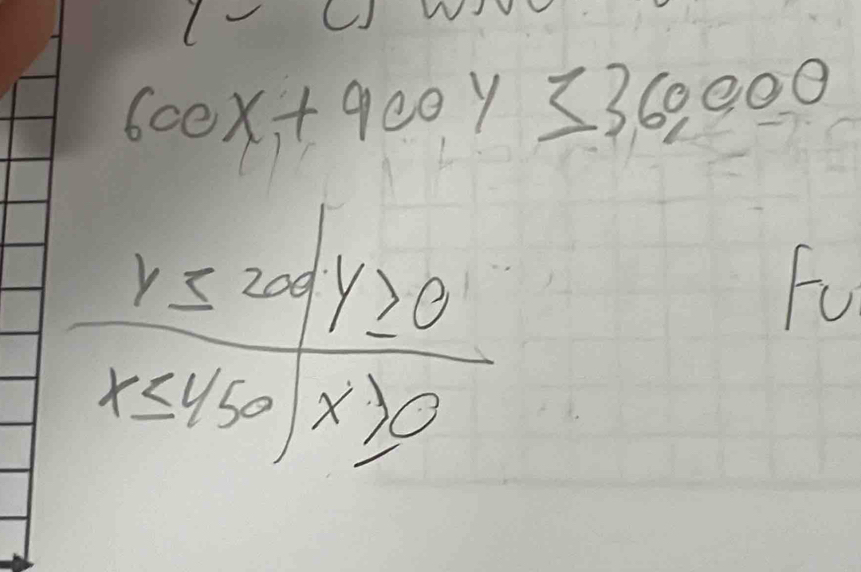 600x + 900y ≤ 360,000
y ≤ 200 | y ≥ 0
x ≤ 450 | x ≥ 0
Fu